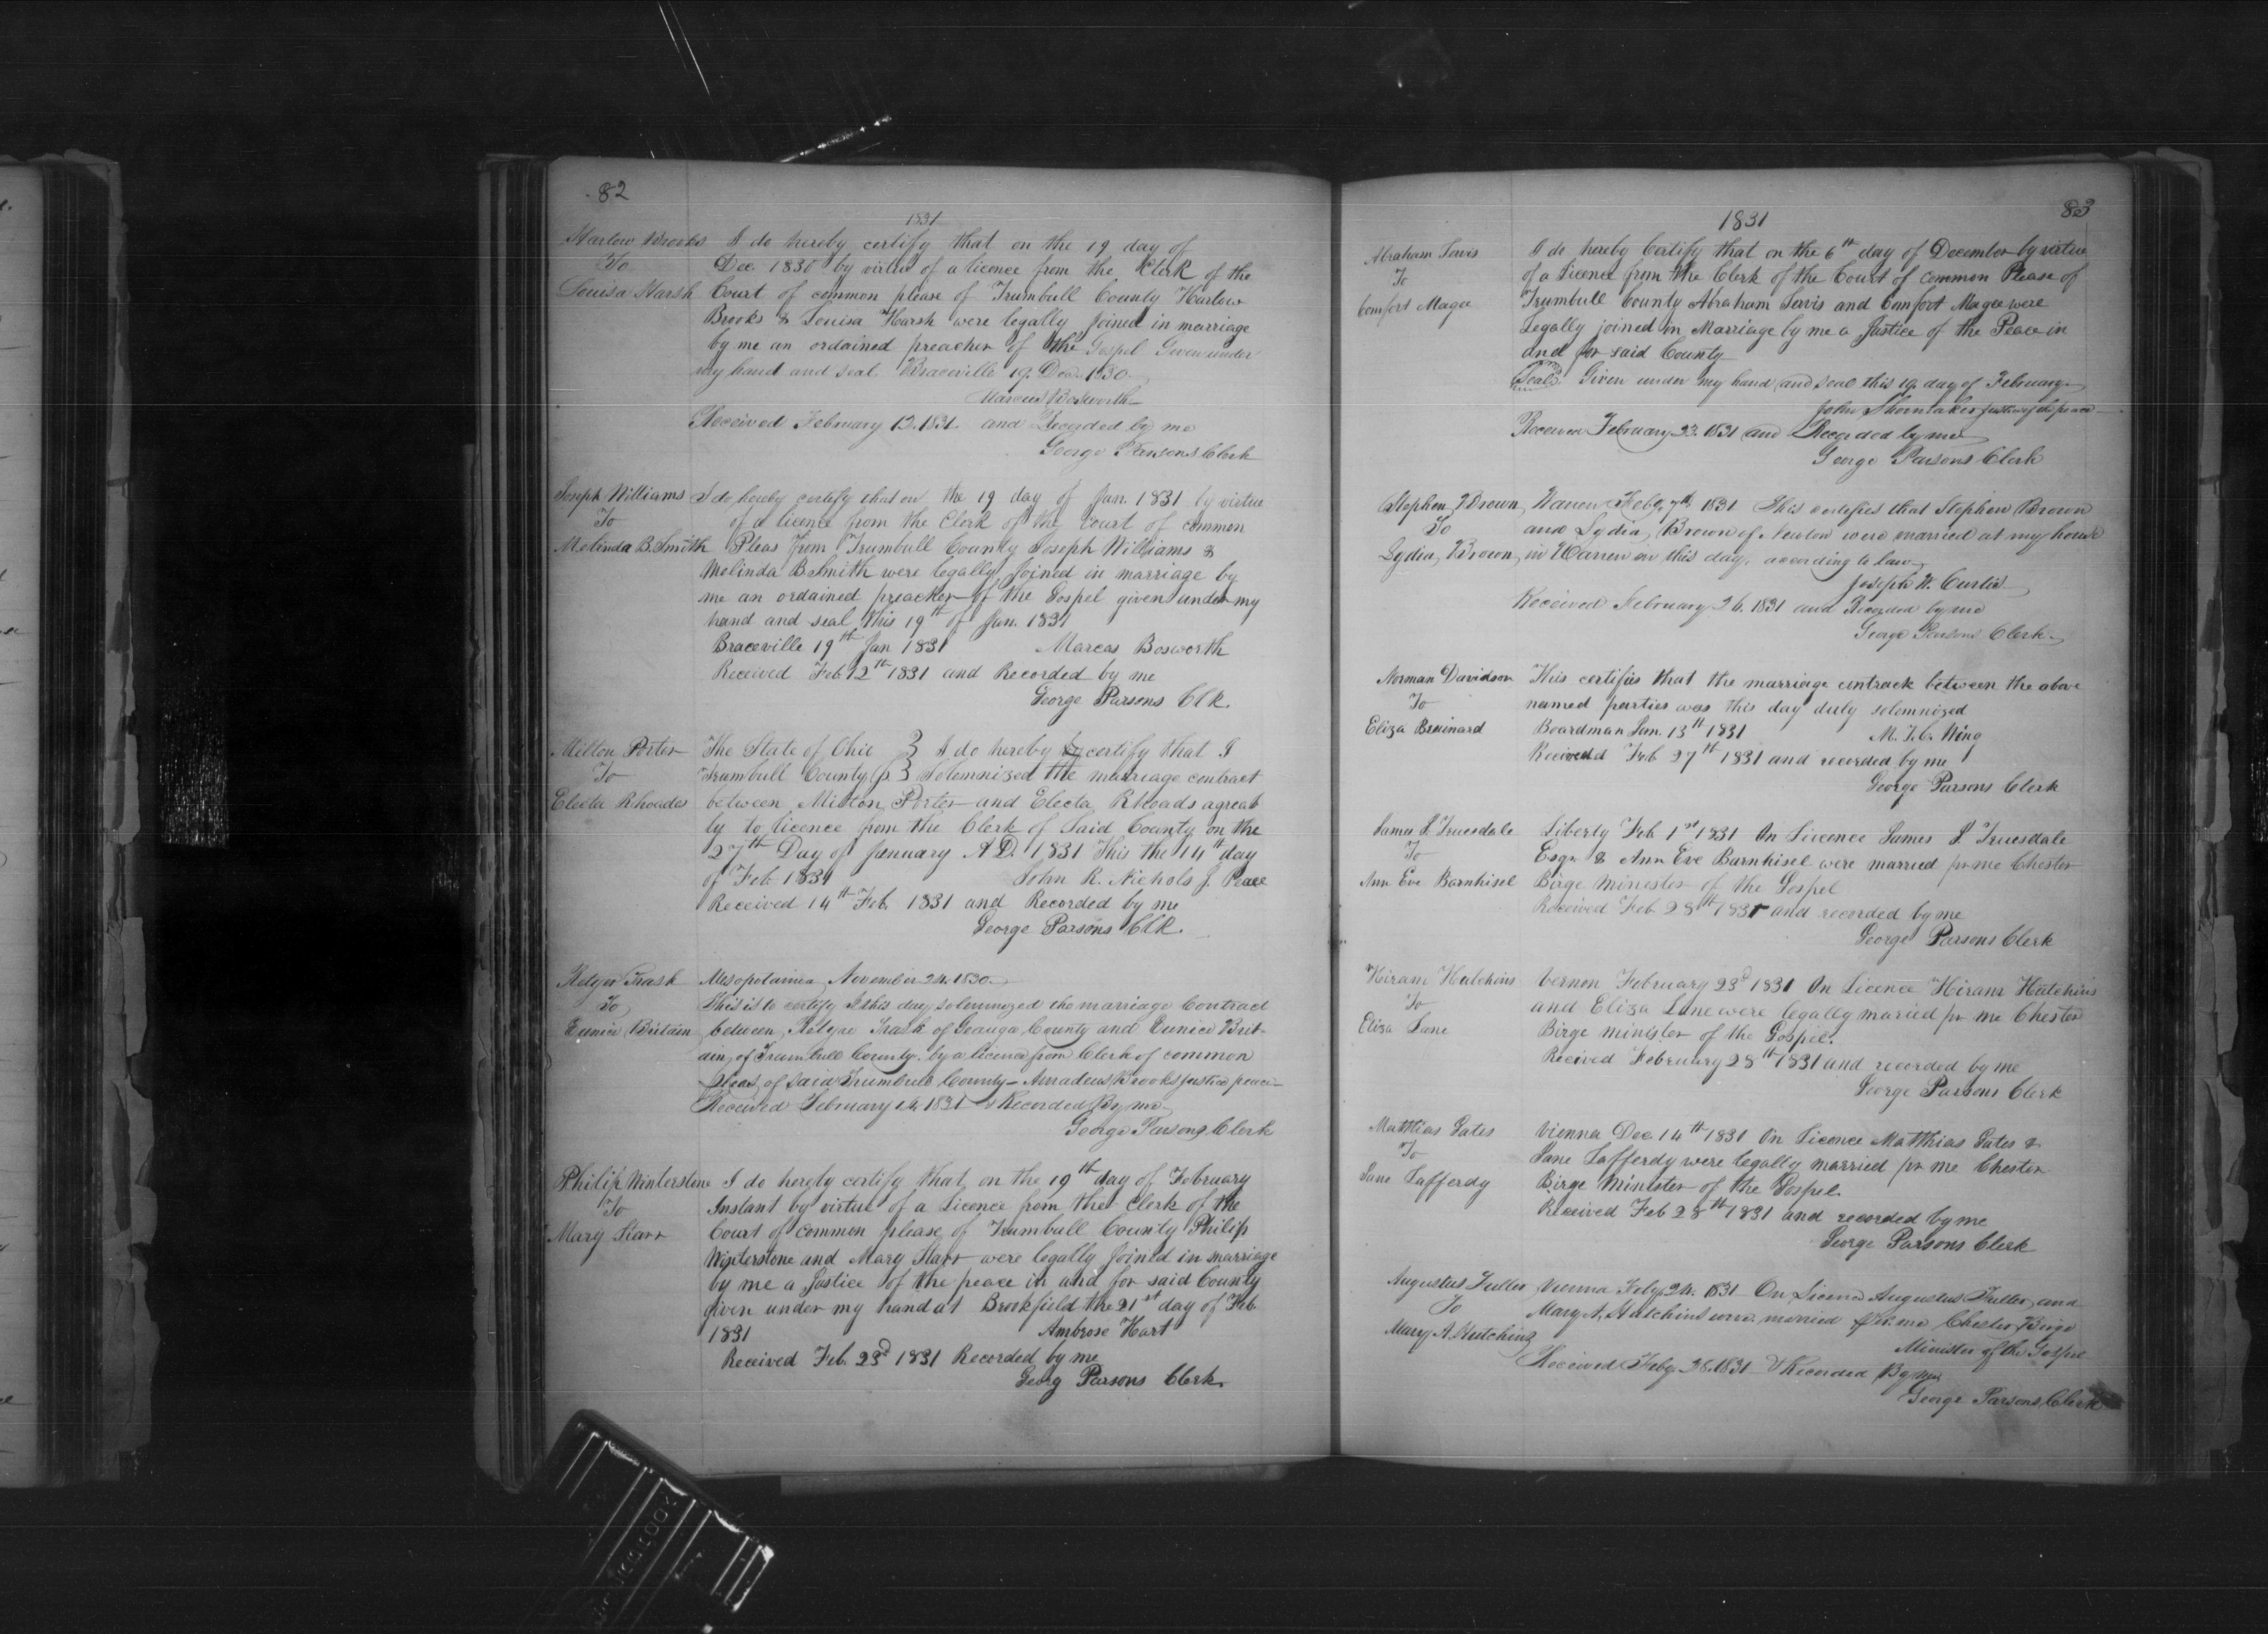 82
1831
Harlow Brooks I do hereby certify that on the 19 day of
To Dec. 1830 by virtue of a licence from the Clerk of the
Louisa Harsh Court of common please of Trumbull County Harlow
Brooks & Louisa Harsh were legally joined in marriage
by me an ordained preacher of the Gospel Given under
my hand and seal Braceville 19. Dec. 1830.
Marcus Bosworth
Received February 12. 1831. and Recorded by me
George Parsons Clerk
Joseph Williams I do hereby certify that on the 19 day of Jan. 1831 by virtue
To of a licence from the Clerk of the Court of common
Melinda B. Smith Pleas from Trumbull County Joseph Williams &
Melinda B Smith were legally joined in marriage by
me an ordained preacher of the Gospel given under my
hand and seal this 19th of Jan. 1831
Braceville 19th Jan 1831 Marcas Bosworth
Received Feb 12th 1831 and Recorded by me
George Parsons Clk.
Milton Porter The State of Ohio } I do hereby certify that I
To Trumbull County } Solemnized the marriage contract
Electa Rhoades between Milton Porter and Electa Rhoads agreab
ly to licence from the Clerk of Said County on the
27th Day of January A.D. 1831 This the 14th day
of Feb 1831 John R. Nichols J. Peace
Received 14th Feb. 1831 and Recorded by me
George Parsons Clk.
Trask Mesopotamia November 24. 1830.
To This is to certify I this day solemnized the marriage Contract
Eunice Britain between Trask of Geauga County and Eunice Brit-
ain, of Trumbull County. by a licence from Clerk of common
pleas, of said Trumbull County - Amadeus Brooks justice peace
Received February 14. 1831 & Recorded By me
George Parsons Clerk
Philip Winterstone I do hereby certify that on the 19th day of February
To Instant by virtue of a Licence from the Clerk of the
Mary Starr Court of common please of Trumbull County Philip
Winterstone and Mary Starr were legally joined in marriage
by me a Justice of the peace in and for said County
given under my hand at Brookfield the 21st day of Feb.
1831 Ambrose Hart
Received Feb. 23d 1831 Recorded by me
Georg Parsons Clerk.
83
1831
Abraham Jervis I do hereby Certify that on the 6th day of December by virtue
To of a Licence from the Clerk of the Court of Common Please of
Comfort Magee Trumbull County Abraham Jervis and Comfort Magee were
Legally joined in Marriage by me a Justice of the Peace in
and for said County
Seal Given under my hand and seal this 19 day of February
John Shoemaker justice of the peace
Received February 23. 1831 and Recorded by me
George Parsons Clerk
Stephen Brown Warren Feby. 7th 1831 This certifies that Stephen Brown
To and Lydia Brown of Newton were married at my house
Lydia Brown in Warren on this day, according to Law
Joseph W. Curtis
Received February 26. 1831 and Recorded by me
George Parsons Clerk.
Norman Davidson This certifies that the marriage contrack between the above
To named parties was this day duly solemnized
Eliza Brainard Boardman Jan. 13th 1831 M. T. C. Wing
Received Feb 27th 1831 and recorded by me
George Parsons Clerk
James S. Truesdale Liberty Feb 1st 1831 On Licence James S. Truesdale
To Esqr. & Ann Eve Barnhisel were married pr me Chester
Ann Eve Barnhisel Birge Minester of the Gospel
Received Feb. 28th 1831 and recorded by me
George Parsons Clerk
Hiram Hutchins Vernon February 23d 1831 On Licence Hiram Hutchins
To and Eliza Lane were legally maried pr me Chester
Eliza Lane Birge minister of the Gospel.
Recived February 28th 1831 and recorded by me
George Parsons Clerk
Matthias Gates Vienna Dec. 14th 1831 On Licence Matthias Gates &
To Jane Lafferdy were legally married pr me Chester
Jane Lafferdy Birge Minister of the Gospel.
Received Feb 28th 1831 and recorded by me
George Parsons Clerk
Augustus Fuller Vienna Feby. 24. 1831 On Licence Augustus Fuller and
To Mary A. Hutchins were married Pr. me Chester Birge
Mary A. Hutchins Minister of the Gospel
Received Feby. 28. 1831 & Recorded By me
George Parsons Clerk